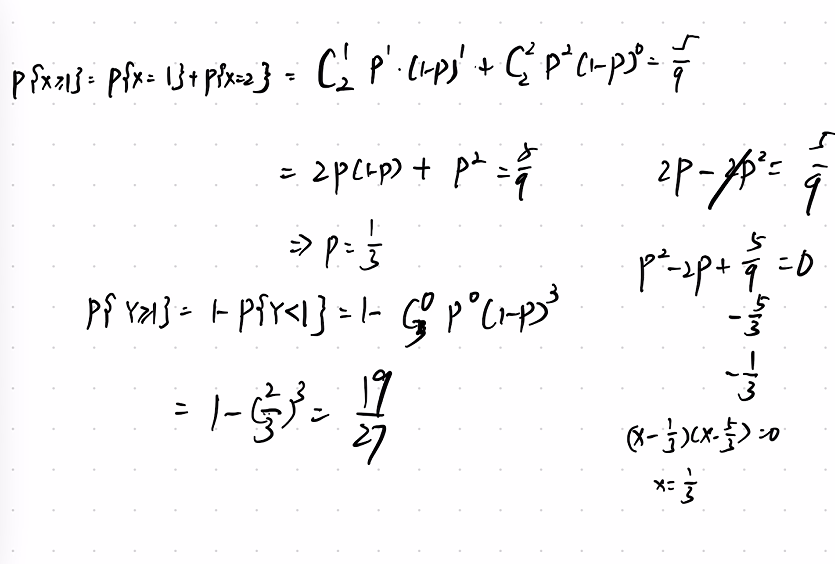 P{X≥1} = P{X=1}+P{X=2} = C₂¹ P¹·(1-P)¹ + C₂² P²(1-P)⁰ = 5/9
= 2P(1-P) + P² = 5/9
⇒ P = 1/3
P{Y≥1} = 1-P{Y<1} = 1- C₃⁰ P⁰(1-P)³
= 1-(2/3)³ = 19/27
2P - P² = 5/9
P²-2P+ 5/9 = 0
-5/3
-1/3
(x-1/3)(x-5/3)=0
x=1/3